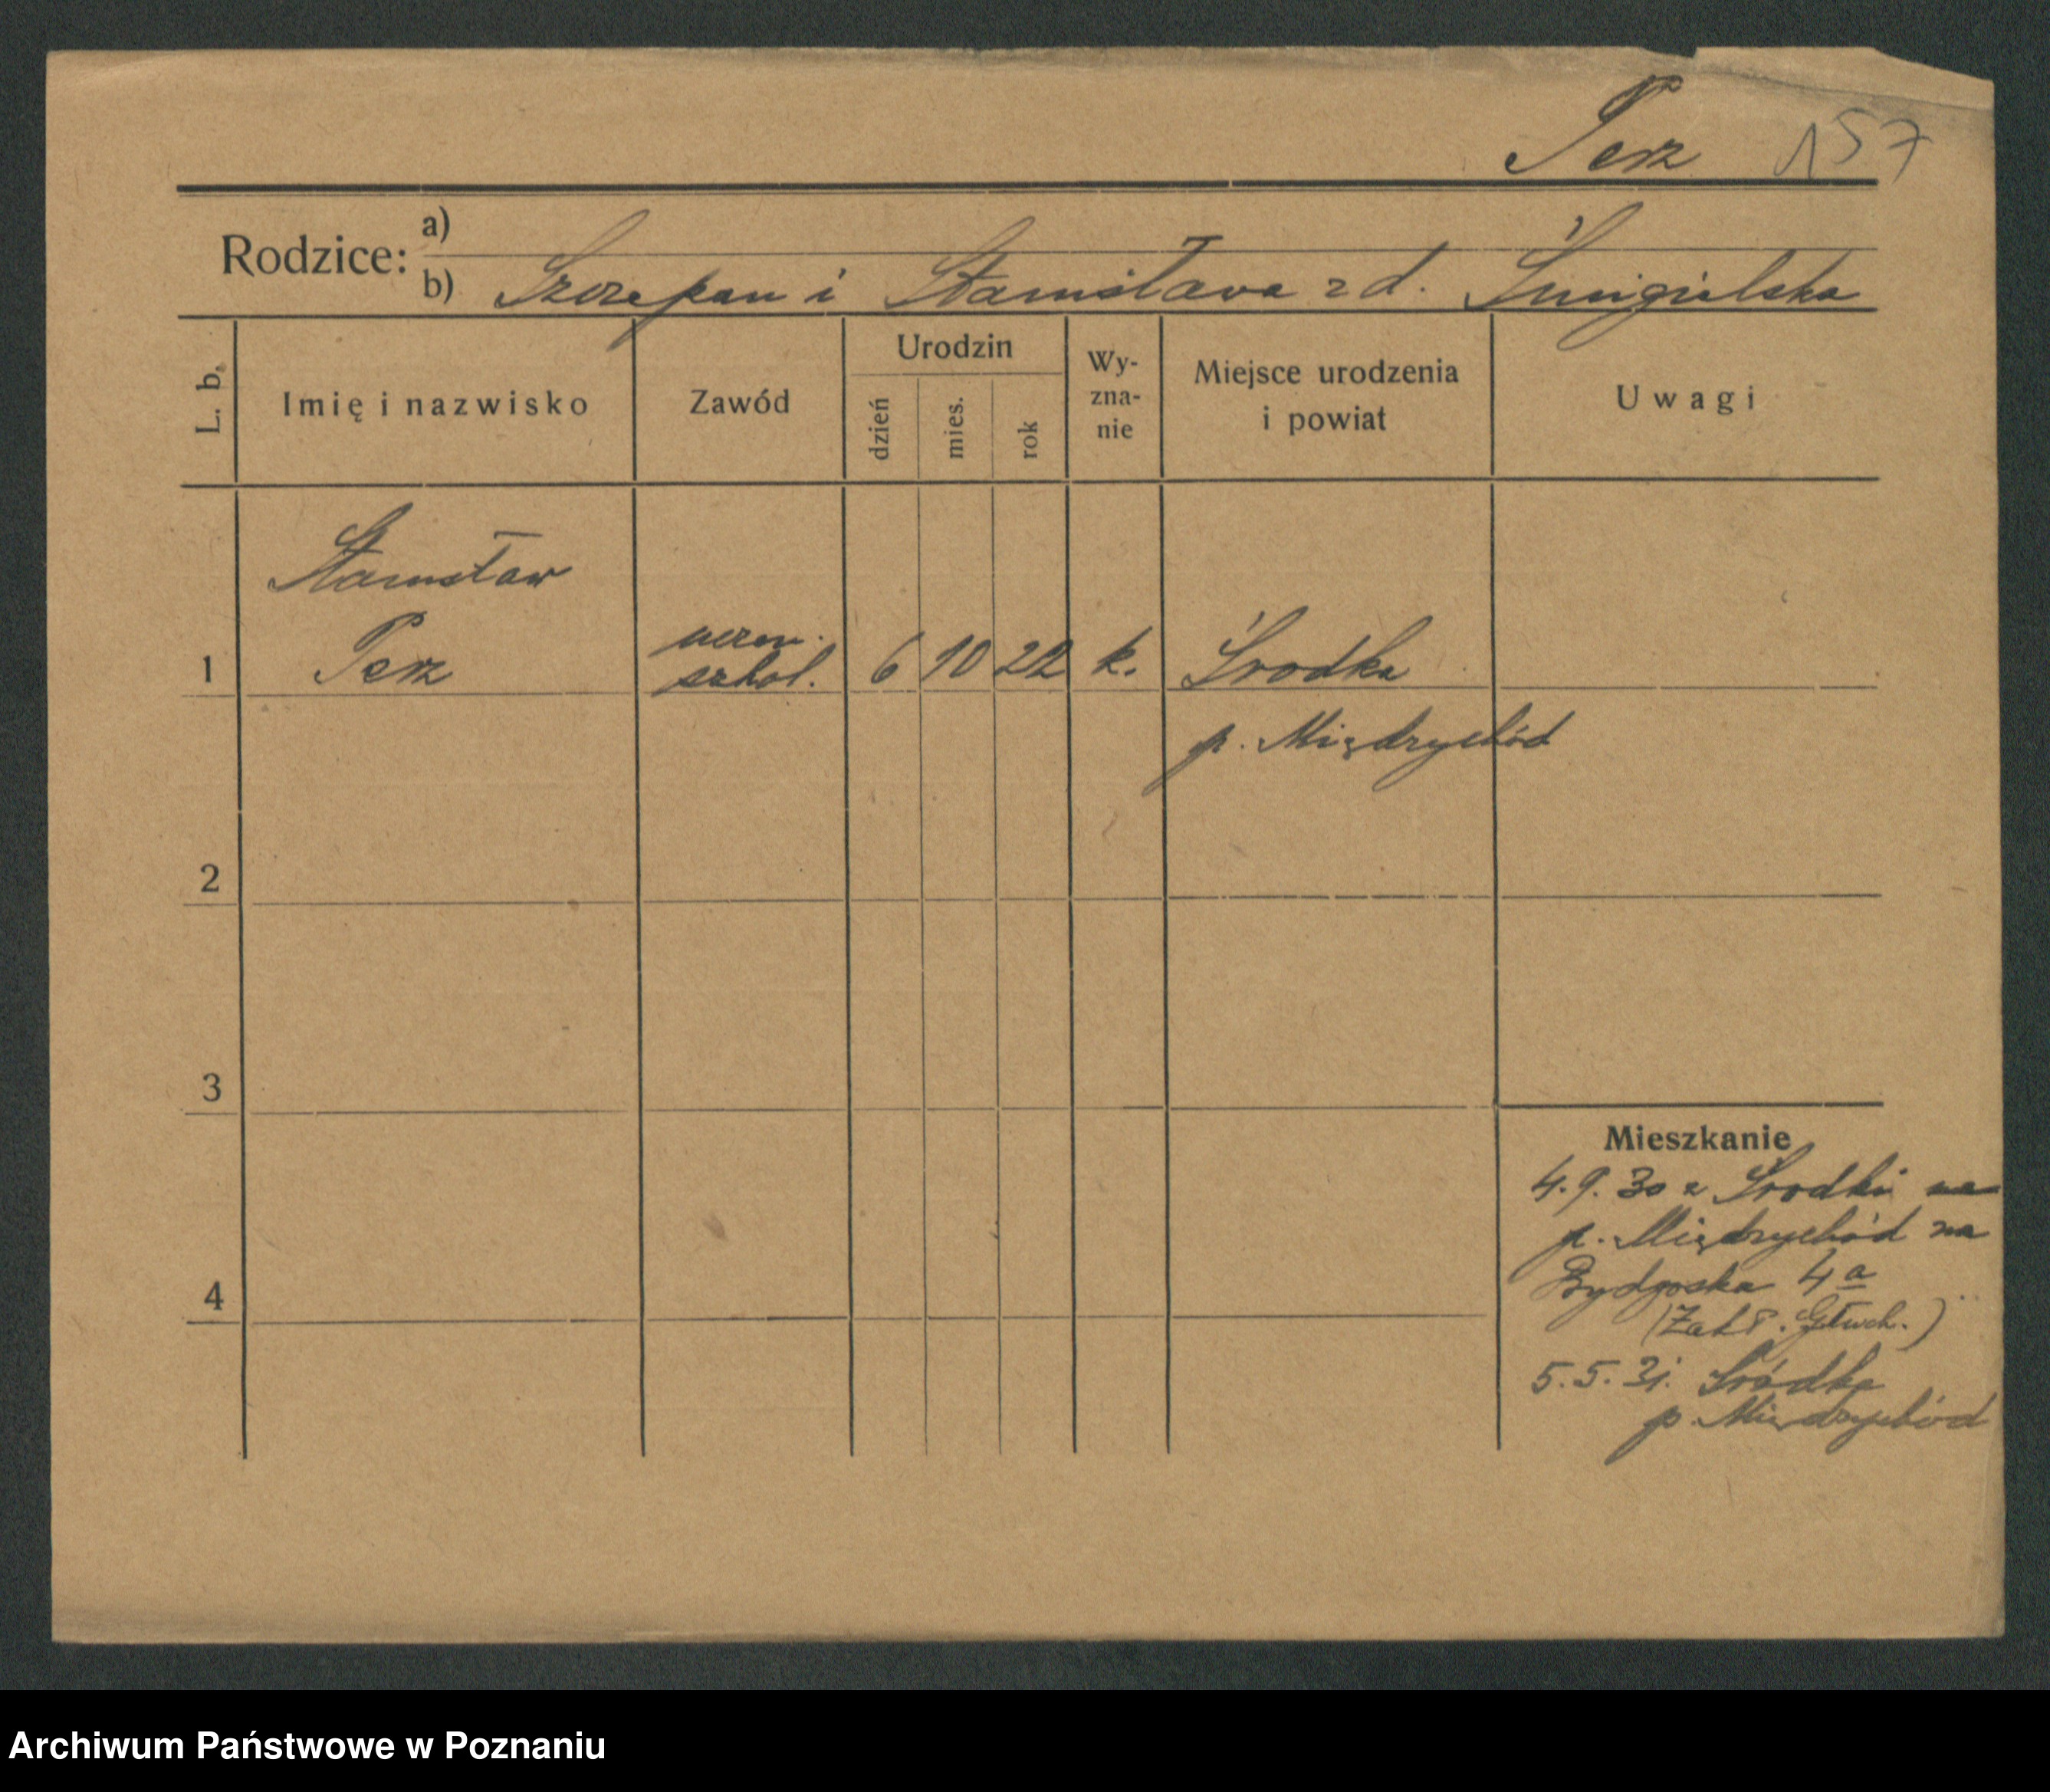 Perz 157
Rodzice:
a)
b) Szczepan i Stanisława z d. Śmigielska
L. b.
Imię i nazwisko
Zawód
Urodzin
dzień
mies.
rok
Wy-
zna-
nie
Miejsce urodzenia
i powiat
Uwagi
Stanisław
1 Perz uczeń szkol. 6 10 22 k. Środka
p. Międzychód
2
3
4
Mieszkanie
4.9.30 z Środki
p. Międzychód na
Bydgoska 4a
(Zakł. Głuch.)
5.5.31. Śródka
p. Międzychód
Archiwum Państwowe w Poznaniu